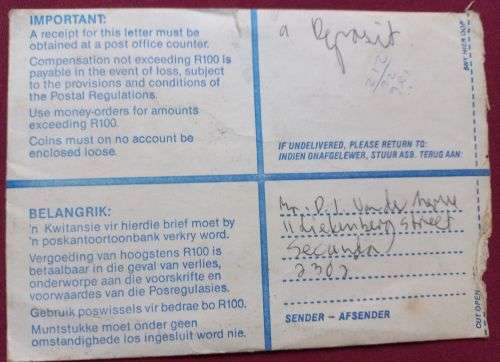 IMPORTANT:
A receipt for this letter must be
obtained at a post office counter.
Compensation not exceeding R100 is
payable in the event of loss, subject
to the provisions and conditions of
the Postal Regulations.
Use money-orders for amounts
exceeding R100.
Coins must on no account be
enclosed loose.
a Deposit
IF UNDELIVERED, PLEASE RETURN TO:
INDIEN ONAFGELEWER, STUUR ASB. TERUG AAN:
BELANGRIK:
'n Kwitansie vir hierdie brief moet by
'n poskantoortoonbank verkry word.
Vergoeding van hoogstens R100 is
betaalbaar in die geval van verlies,
onderworpe aan die voorskrifte en
voorwaardes van die Posregulasies.
Gebruik poswissels vir bedrae bo R100.
Muntstukke moet onder geen
omstandighede los ingesluit word nie.
Mr. P. J. Van der Merwe
Street
Secunda
2302
SENDER – AFSENDER
OUT OPEN
SNY HIER OOP